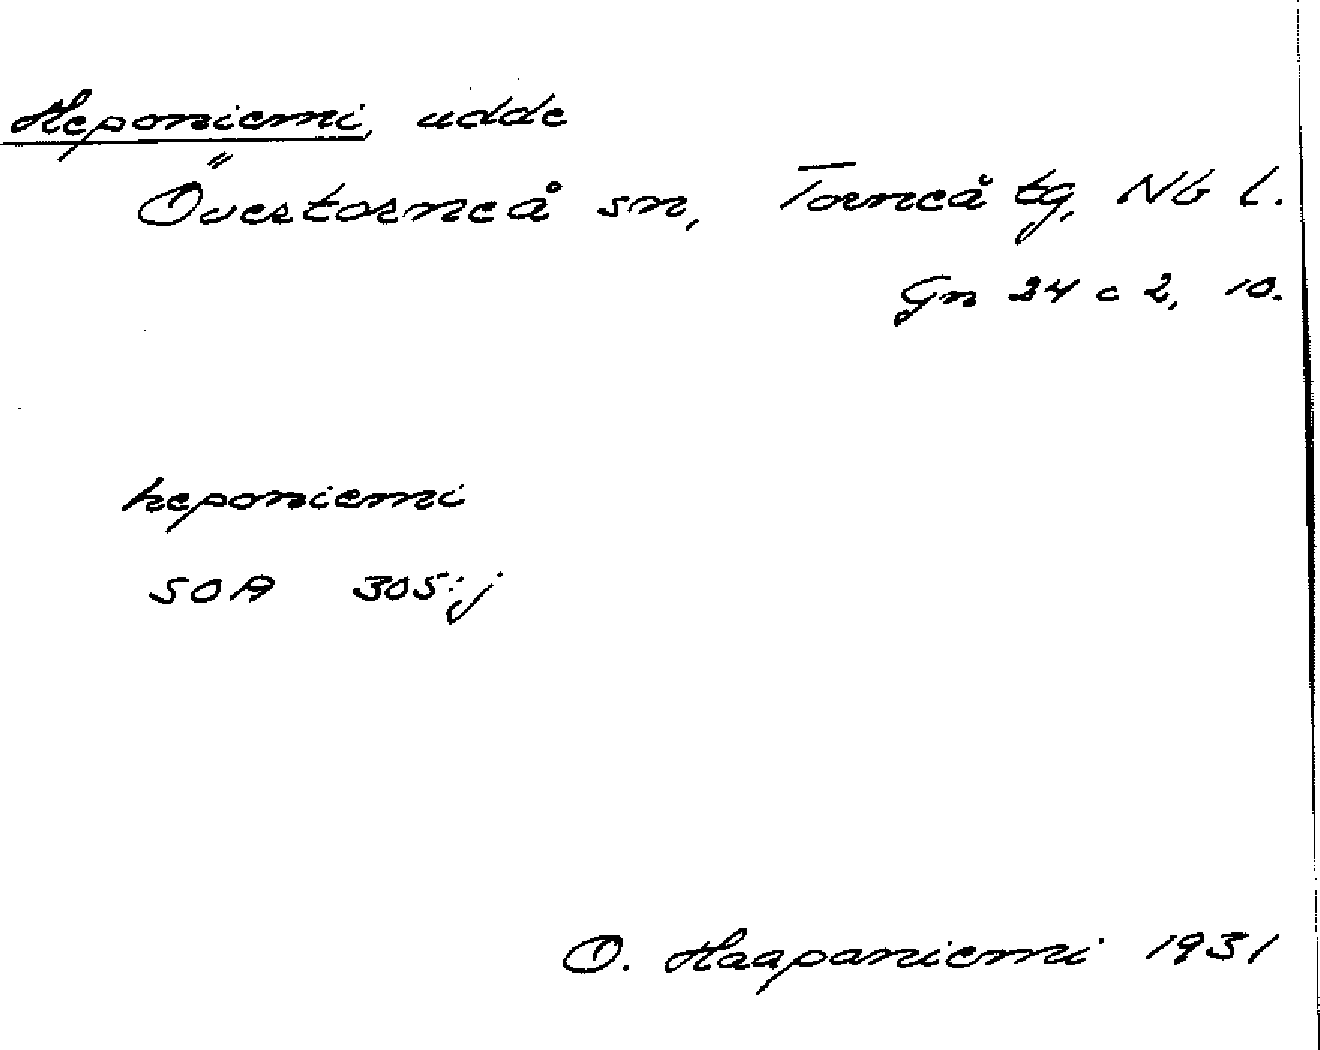 Heponiemi, udde
Övertorneå sn, Torneå tg, Nb l.
Gn 24 c 2, 10.
heponiemi
SOA 305:j
O. Haapaniemi 1931